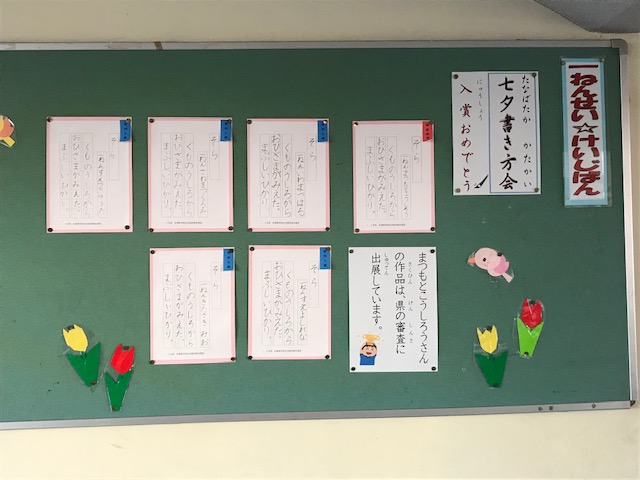 一ねんせい☆けいじばん
たなばたか かたかい
七夕書き方会
にゅうしょう
入賞おめでとう
そら
くものうしろから
おひさまがみえた。
まぶしいひかり。
そら
くものうしろから
おひさまがみえた。
まぶしいひかり。
そら
くものうしろから
おひさまがみえた。
まぶしいひかり。
そら
くものうしろから
おひさまがみえた。
まぶしいひかり。
まつもとこうしろうさん
の作品は、県の審査に
さくひん けん しんさ
出展しています。
しゅってん
そら
くものうしろから
おひさまがみえた。
まぶしいひかり。
そら
くものうしろから
おひさまがみえた。
まぶしいひかり。